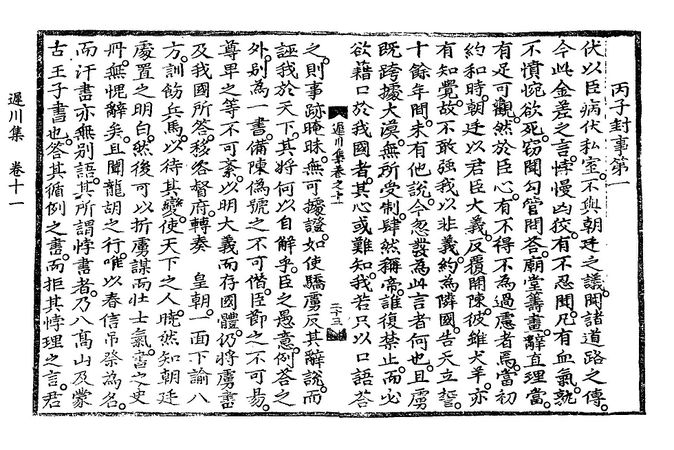 丙子封事第一
伏以臣病伏私室。不與朝廷之議。聞諸道路之傳。
今此金差之言。悖慢凶狡。有不忍聞。凡有血氣。孰
不憤惋欲死。竊聞勾管問答。廟堂籌畫。辭直理當。
有足可觀。然於臣心。有不得不爲過慮者焉。當初
約和時。朝廷以君臣大義。反覆開陳。彼雖犬羊。亦
有知覺。故不敢強我以非義。約爲隣國。告天立誓。
十餘年間。未有他說。今忽發爲此言者何也。且虜
旣跨據大漠。無所受制。肆然稱帝。誰復禁止。而必
欲藉口於我國者。其心或難知。我若只以口語答
遲川集卷之十一 二十三
之。則事跡晻昧。無可據證。如使驕虜反其辭說。而
誣我於天下。其將何以自解乎。臣之愚意。例答之
外。別爲一書。備陳僞號之不可僭。臣節之不可易。
尊卑之等不可紊。以明大義而存國體。仍將虜書
及我國所答。移咨督府。轉奏 皇朝。一面下諭八
方。訓飭兵馬。以待其變。使天下之人曉然知朝廷
處置之明白。然後可以折虜謀而壮士氣。書之史
冊。無愧辭矣。且聞龍胡之行。唯以春信吊祭爲名。
而汗書亦無別語。其所謂悖書者。乃八高山及蒙
古王子書也。答其循例之書。而拒其悖理之言。君
遲川集 卷十一